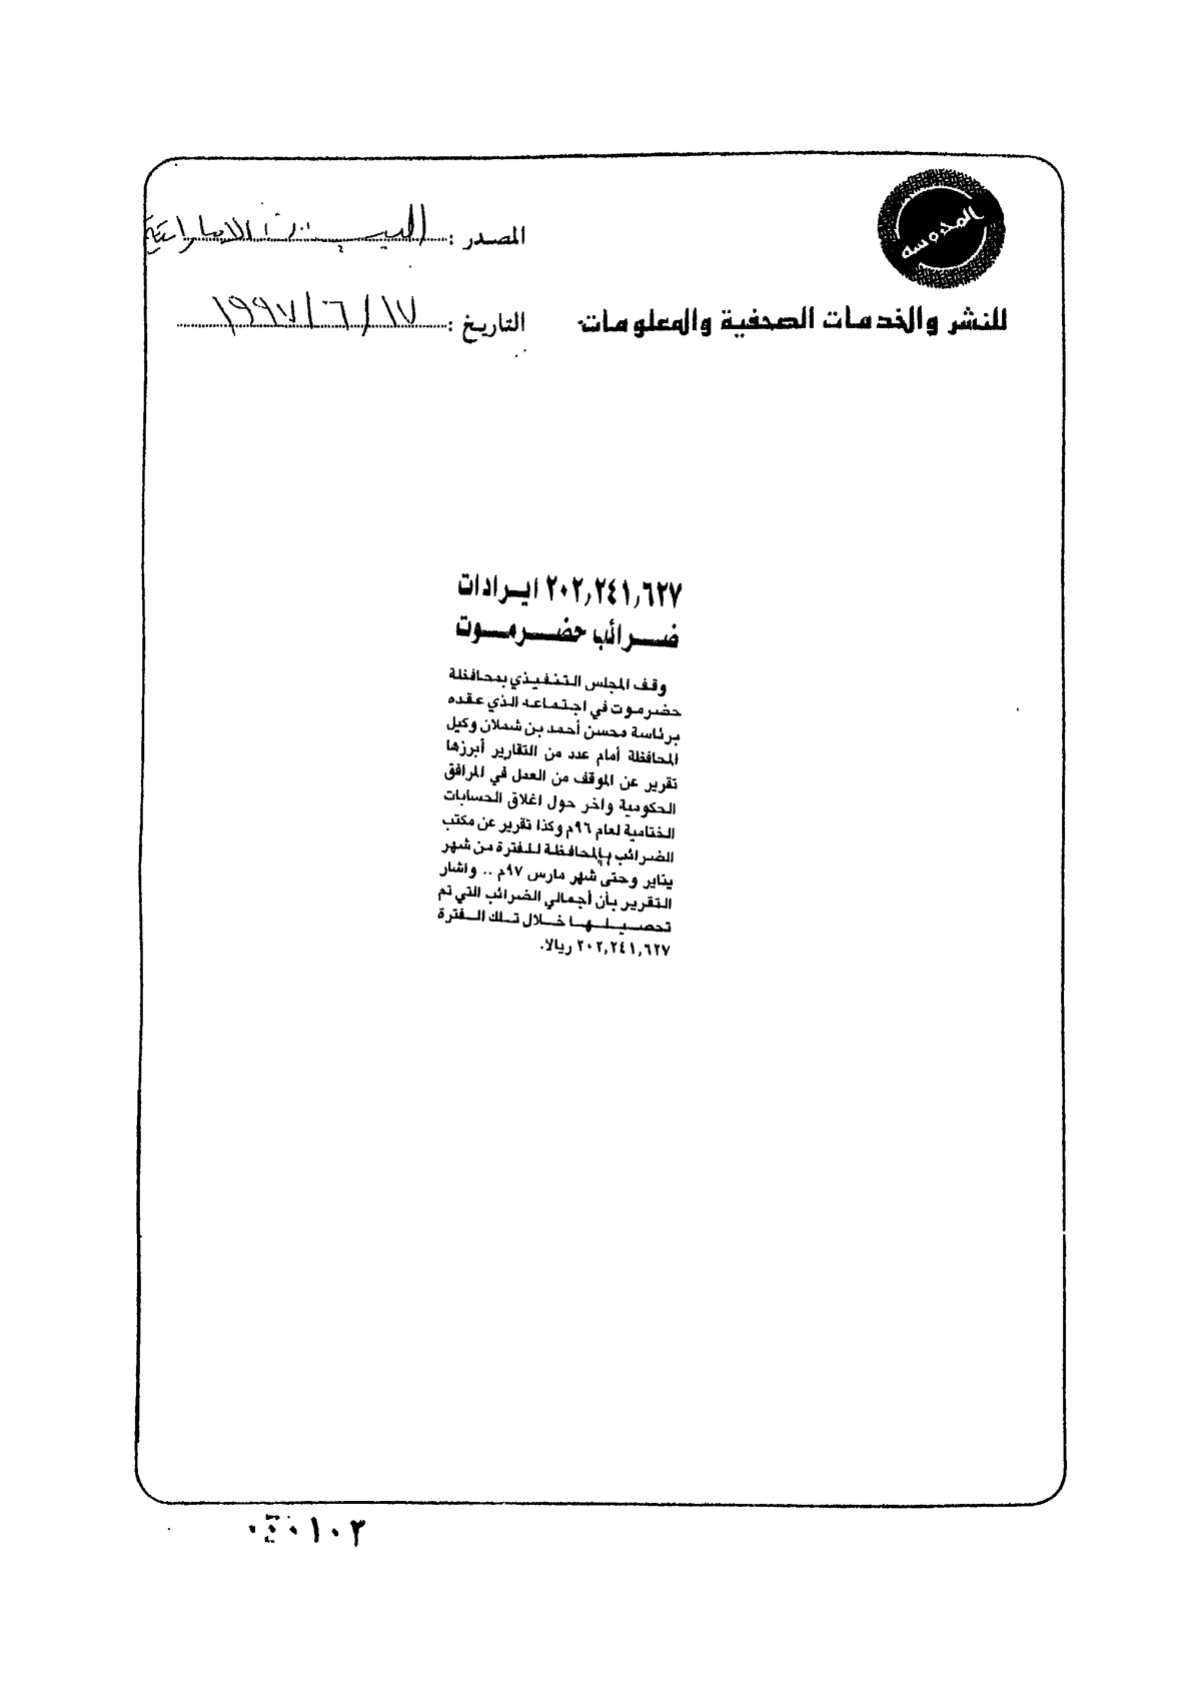 المحروسه
المصدر : البيان الإماراتية
للنشر والخدمات الصحفية والمعلومات
التاريخ : ١٧/٦/١٩٩٧
٢٠٢,٢٤١,٦٢٧ ايرادات
ضرائب حضرموت
وقف المجلس التنفيذي بمحافظة
حضرموت في اجتماعه الذي عقده
برئاسة محسن أحمد بن شملان وكيل
المحافظة أمام عدد من التقارير أبرزها
تقرير عن الموقف من العمل في المرافق
الحكومية واخر حول اغلاق الحسابات
الختامية لعام ٩٦م وكذا تقرير عن مكتب
الضرائب بالمحافظة للفترة من شهر
يناير وحتى شهر مارس ٩٧م .. واشار
التقرير بأن أجمالي الضرائب التي تم
تحصيلها خلال تلك الفترة
٢٠٢,٢٤١,٦٢٧ ريالا.